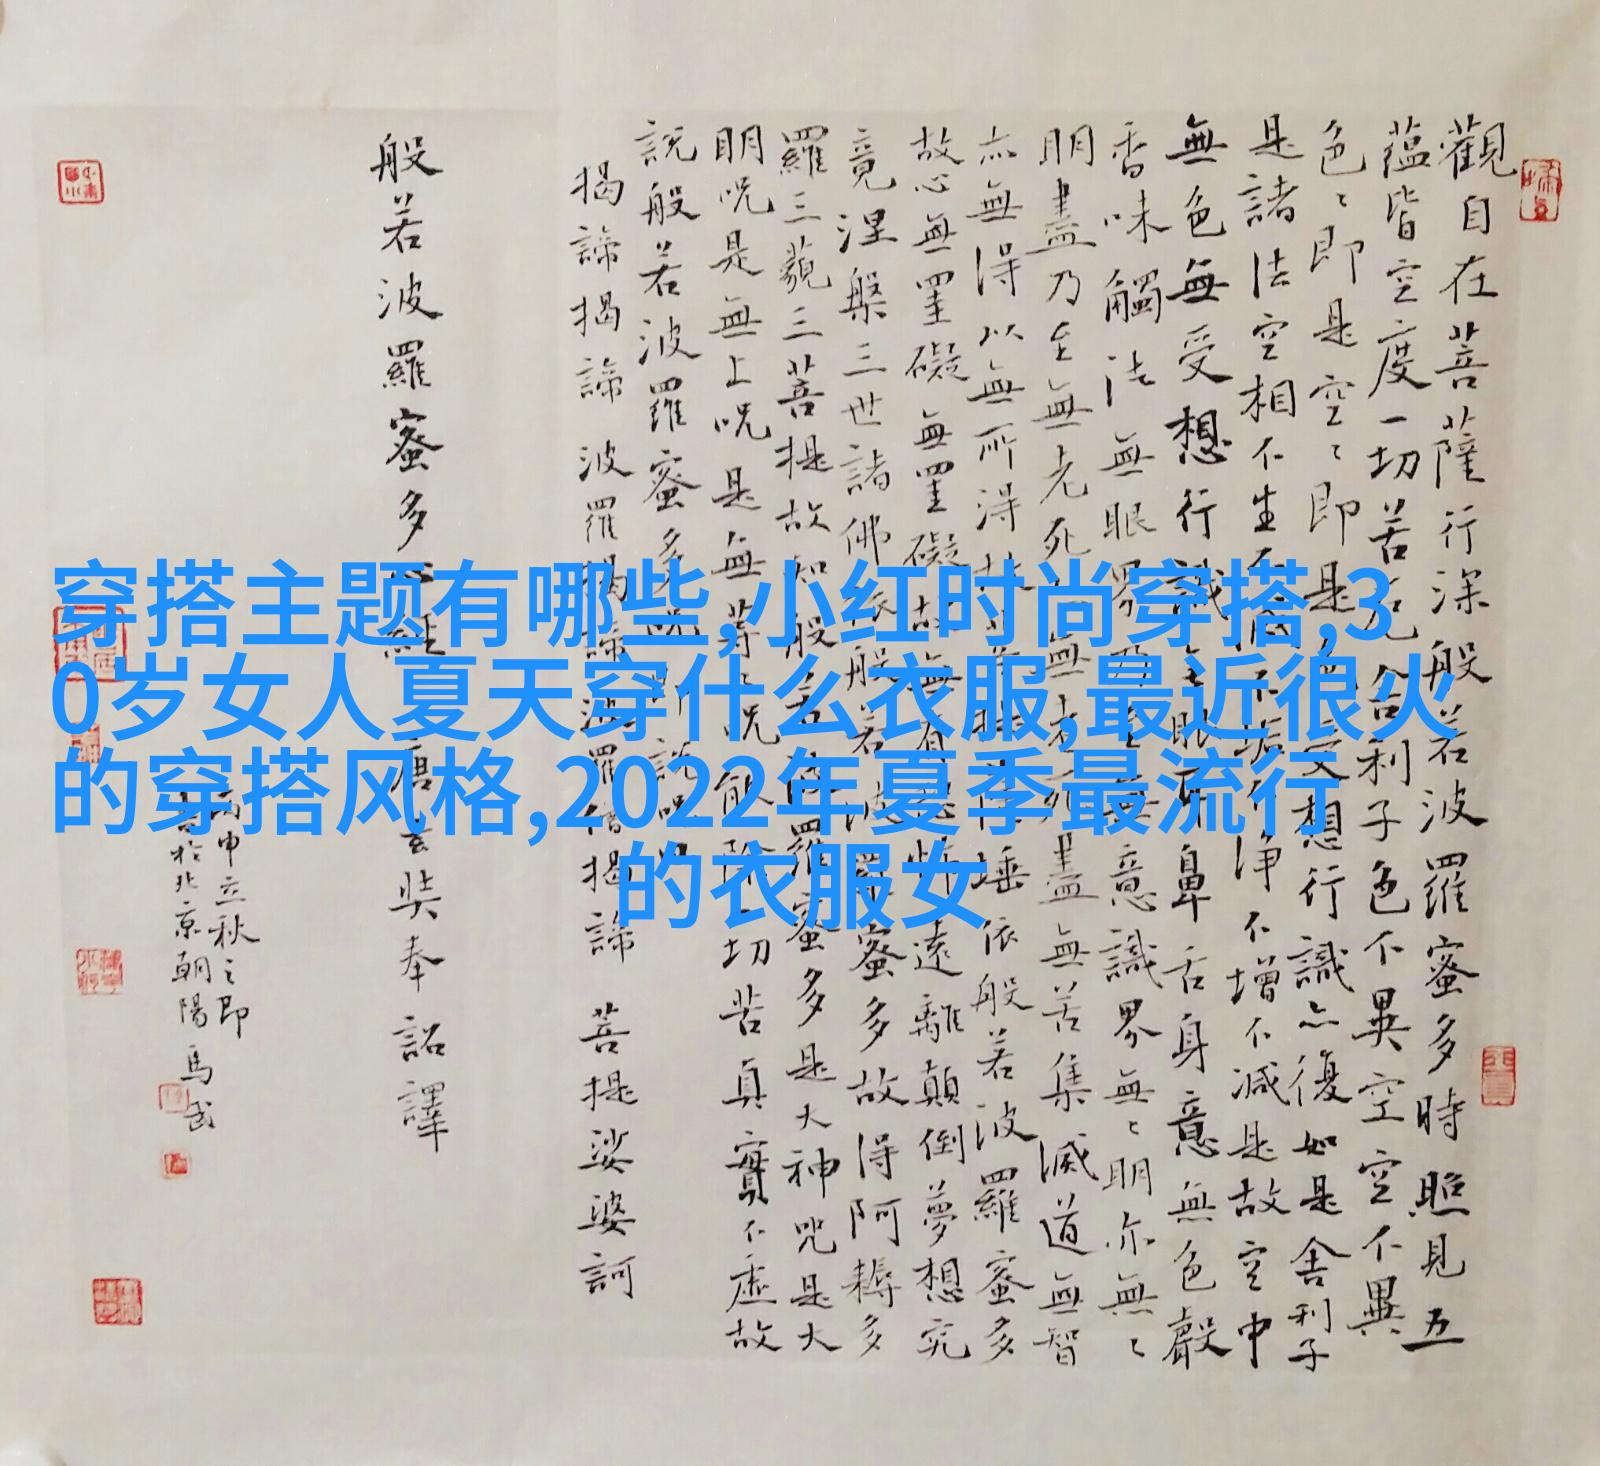 觀自在菩薩行深般若波羅蜜多時照見五
蘊皆空度一切苦厄舍利子色不異空空不異
色〻即是空〻即是色受想行識亦復如是舍利子
是諸法空相不生不滅不垢不淨不增不減是故空中
無色無受想行識無眼耳鼻舌身意無色聲
香味觸法無眼界乃至無意識界無〻明亦無〻
明盡乃至無老死亦無老死盡無苦集滅道無智
亦無得以無所得故菩提薩埵依般若波羅蜜多
故心無罣礙無罣礙故無有恐怖遠離顛倒夢想究
竟涅槃三世諸佛依般若波羅蜜多故得阿耨多
羅三藐三菩提故知般若波羅蜜多是大神咒是大
明呪是無上呪是無等〻呪能除一切苦真實不虛故
說般若波羅蜜多呪即說呪曰
揭諦揭諦波羅揭諦波羅僧揭諦 菩提娑婆訶
般若波羅蜜多心經 唐玄奘奉詔譯
丙申立秋之即
書於北京朝陽馬武
穿搭主题有哪些,小红时尚穿搭,3
0岁女人夏天穿什么衣服,最近很火
的穿搭风格,2022年夏季最流行
的衣服女